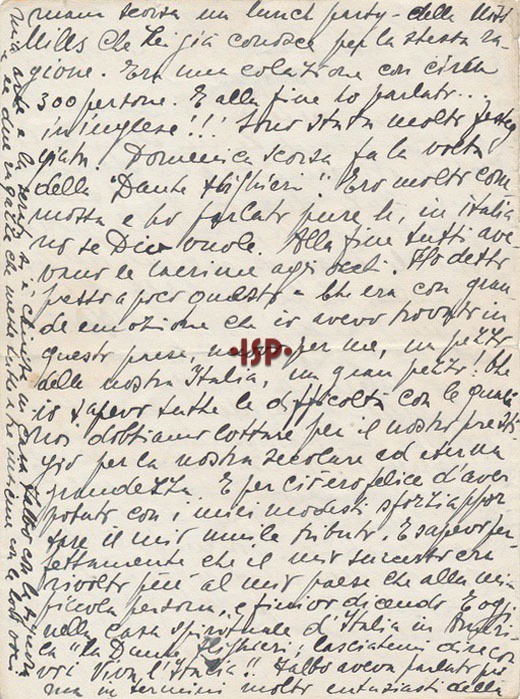 mana scorsa un lunch party - della Miss
Mills che lei già conosce per la stessa ra
gione. Era una colazione con circa
300 persone. E alla fine ho parlato...
in inglese!!! Sono stata molto festeg
giata. Domenica scorsa fu la volta
della "Dante Alighieri". Ero molto com
mossa e ho parlato pure lì, in italia
no se Dio vuole. Alla fine tutti ave
vano le lacrime agli occhi. Ho detto
presso a poco questo - che era con gran
de emozione che io avevo trovato in
questo paese, nuovo per me, un pezzo
della nostra Italia, un gran pezzo! Che
io sapevo tutte le difficoltà con le quali
noi dobbiamo lottare per il nostro presti
gio per la nostra secolare ed eterna
grandezza. E per ciò ero felice d'aver
potuto con i miei modesti sforzi appor
tare il mio umile tributo. E sapevo per
fettamente che il mio successo era
rivolto più al mio paese che alla mia
piccola persona, e finivo dicendo E oggi
nella casa spirituale d'Italia in Ameri
ca "La Dante Alighieri", lasciatemi dire con
voi Viva l'Italia"!! Balbo aveva parlato pri
ma in termini molto entusiasti della
mia arte e la sera si è
·ISP·